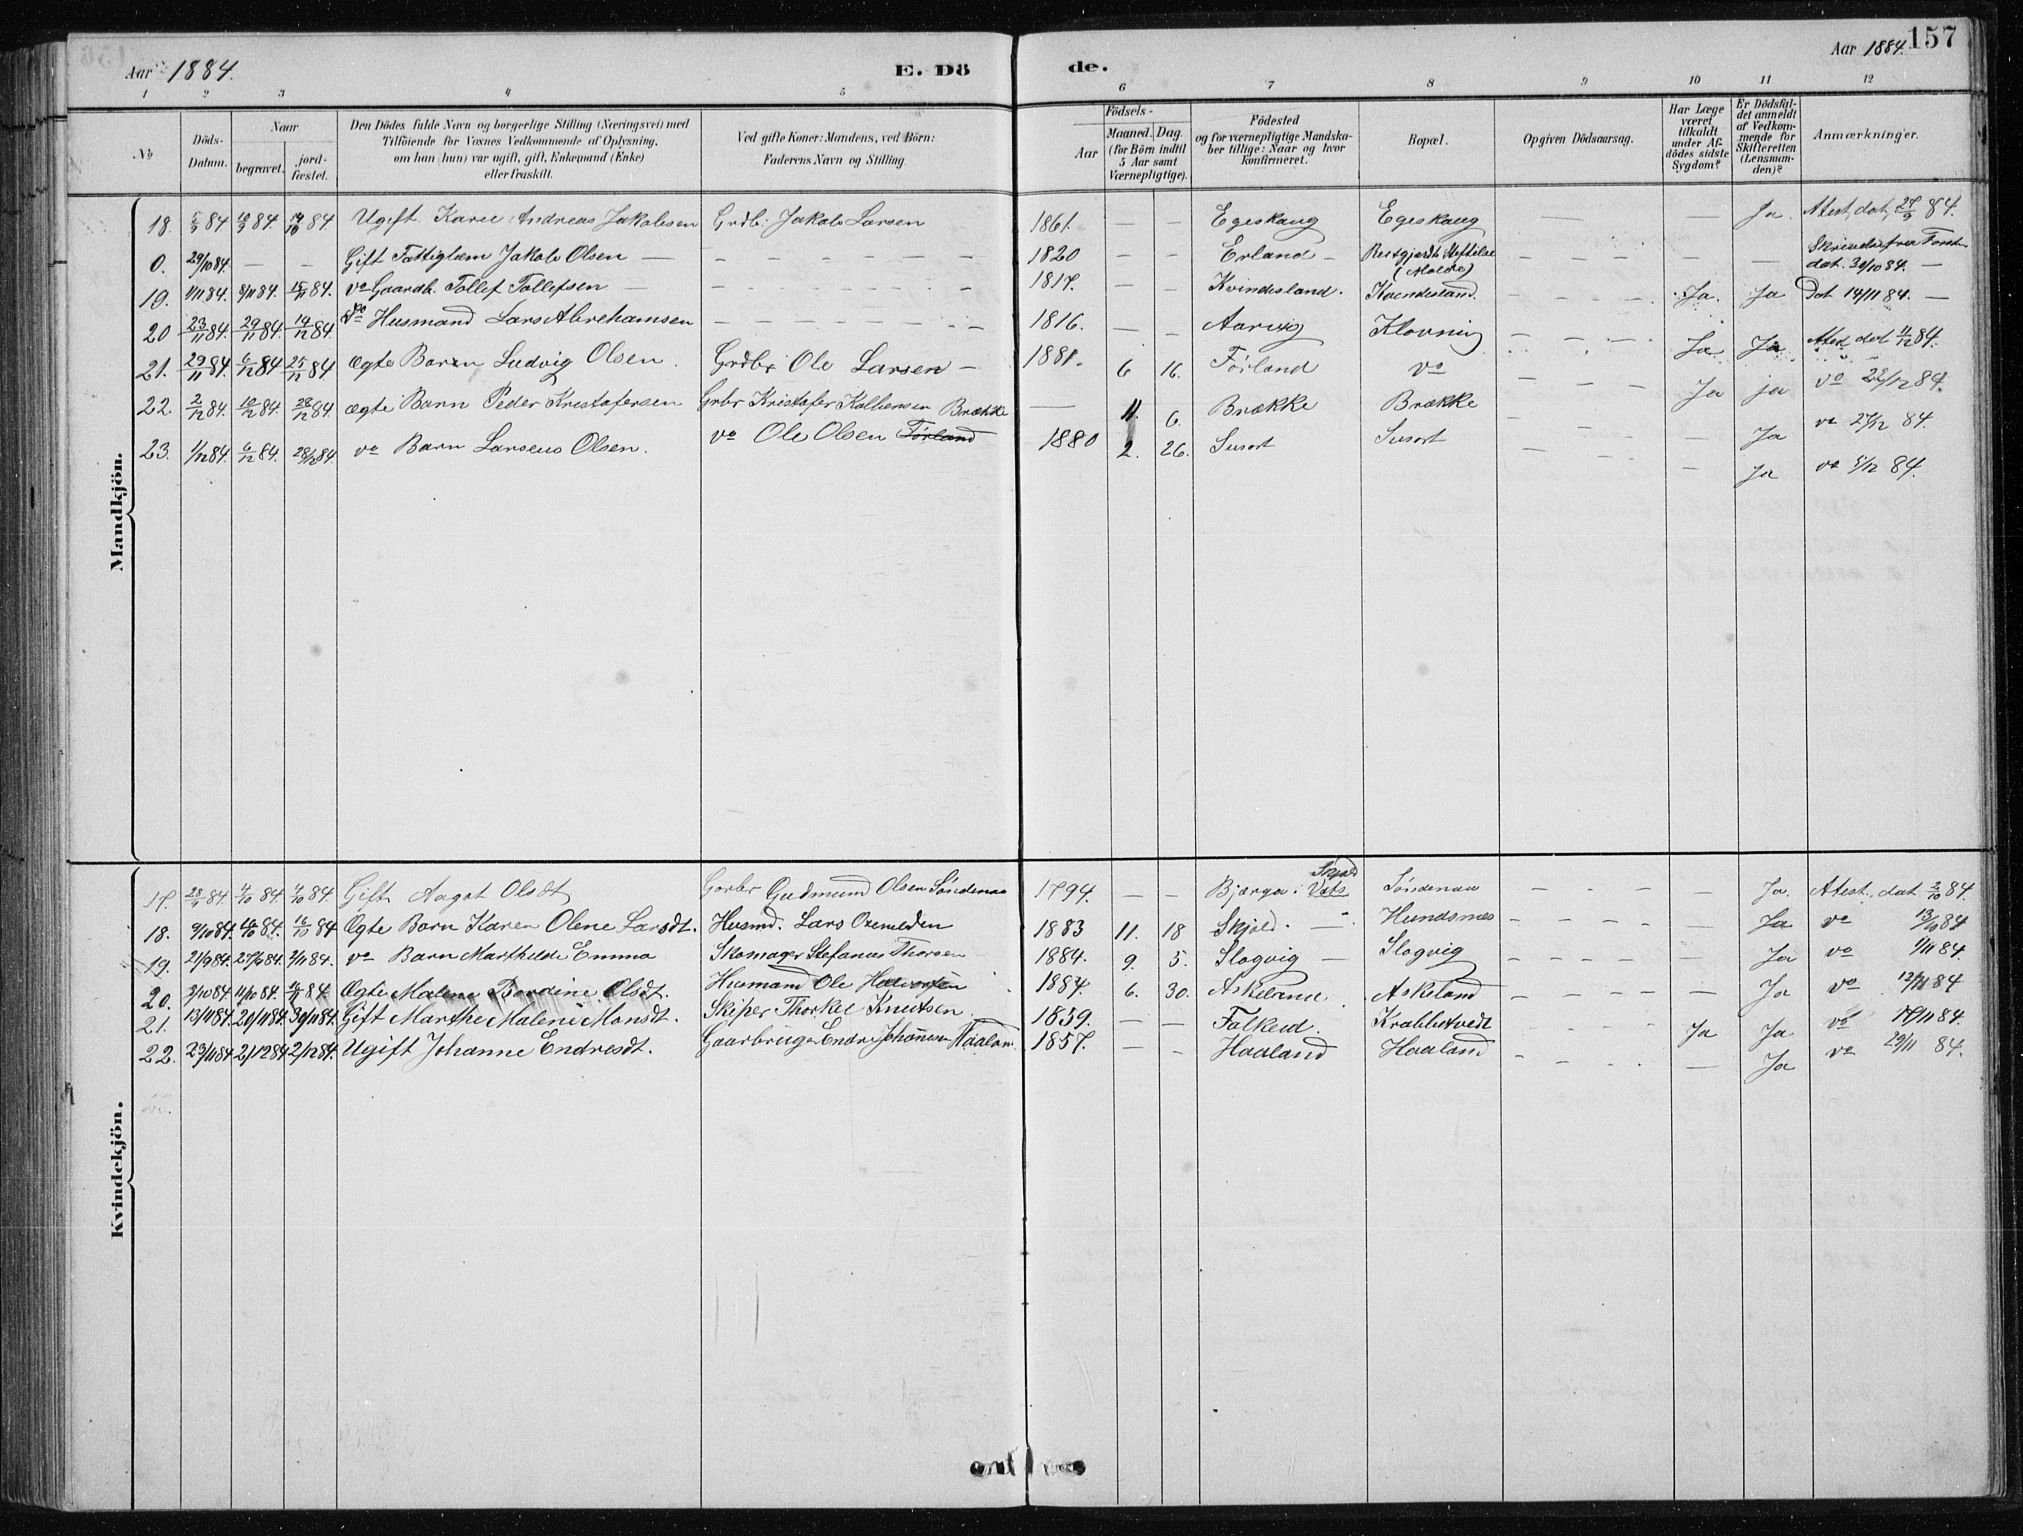 Aar 1884.
E. Dö
de.
Aar 1884.
157
1 2 3 4 5 6 7 8 9 10 11 12
No
Döds-Datum.
Naar
begravet.
jord-fæstet.
Den Dödes fulde Navn og borgerlige Stilling (Næringsvei) med
Tilföiende for Voxnes Vedkommende af Oplysning,
om han (hun) var ugift, gift, Enkemand (Enke)
eller fraskilt.
Ved gifte Koner: Mandens, ved Börn:
Faderens Navn og Stilling.
Födsels-
Aar
Maaned. Dag.
(for Börn indtil
5 Aar samt
Værnepligtige).
Födested
og for værnepligtige Mandska-
ber tillige: Naar og hvor
konfirmeret.
Bopæl.
Opgiven Dödsaarsag.
Har Læge
været
tilkaldt
under Af-
dödes sidste
Sygdom?
Er Dödsfal-
det anmeldt
af Vedkom-
mende for
Skifteretten
(Lensman-
den)?
Anmærkninger.
Mandkjön.
18. 5/9 84 10/9 84. 19/10 84 Ugift Karee Andreas Jakobsen Grdb: Jakob Larsen 1861. — — Egeskaug Egeskaug — Ja. Atest, dat, 27/9 84.
0. 29/10 84. — — Gift Fattiglem Jakob Olsen — 1820 — — Erland — Restgjerdt (Molde) — — dat. 30/10 84. —
19. 1/11 84. 8/11 84. 15/11 84. vo Gaardb. Tollef Tollefsen — 1817. — — Kvindesland. Kvendesland. Ja. Ja Dat 14/11 84. —
20 23/11 84. 29/11 84. 14/12 84. vo Husmand Lars Abrehamsen 1816. — — Aarvig Klovning Ja Ja Atest dat 11/12 84.
21. 29/11 84. 6/12 84 25/12 84. Ægte Barn Ludvig Olsen. Grdbr Ole Larsen — 1881. 6 16. Førland vo Ja ja vo 22/12 84.
22 2/12 84. 10/12 84. 28/12 84 ægte Barn Peder Kristofersen Grbr Kristofer Kolbensen Brække — 11. 6. Brække Brække — Ja vo 27/12 84.
23. 1/12 84. 6/12 84. 28/12 84. vo Barn Larsens Olsen. vo Ole Olsen Førland 1880 2. 26. Susort Susort — Ja vo 5/12 84.
Kvindekjön.
17. 28/9 84 4/10 84. 4/10 84. Gift Aagot Olsdt Gorbr Gudmund Olsen Søndenaa 1794. — — Bjærga i Vats Skjold Søndenaa — Ja. Atest, dat 2/10 84.
18. 9/10 84. 16/10 84. 16/10 84 Ægte Barn Karen Olene Larsdt. Husmd. Lars 1883 11. 18 Skjold. — Hundsnæs — Ja vo 13/10 84
19. 21/9 84. 27/9 84 2/11 84. vo Barn Marthilde Emma Skomager Stefanus Thorsen 1884. 9. 5. Slogvig — Slogvig Ja vo 1/11 84.
20. 3/10 84 11/10 84. 84 Ægte Malene Bordine Olsdt. Husmand Ole Halvorsen 1884. 6. 30. Askeland Ja vo 12/11 84
21. 13/11 84. 20/11 84. 30/11 84. Gift Marthe Malene Monsdt. Skiper Thorkel Knutsen 1859. — — Falkeid. Krabbetvedt Ja Ja vo 19/11 84.
22. 23/11 84 2/12 84 2/12 84. Ugift Johanne Endresdt. Gaarbruger Endre Johannesen Haaland 1857. — — Haaland Haaland — Ja vo 29/11 84.